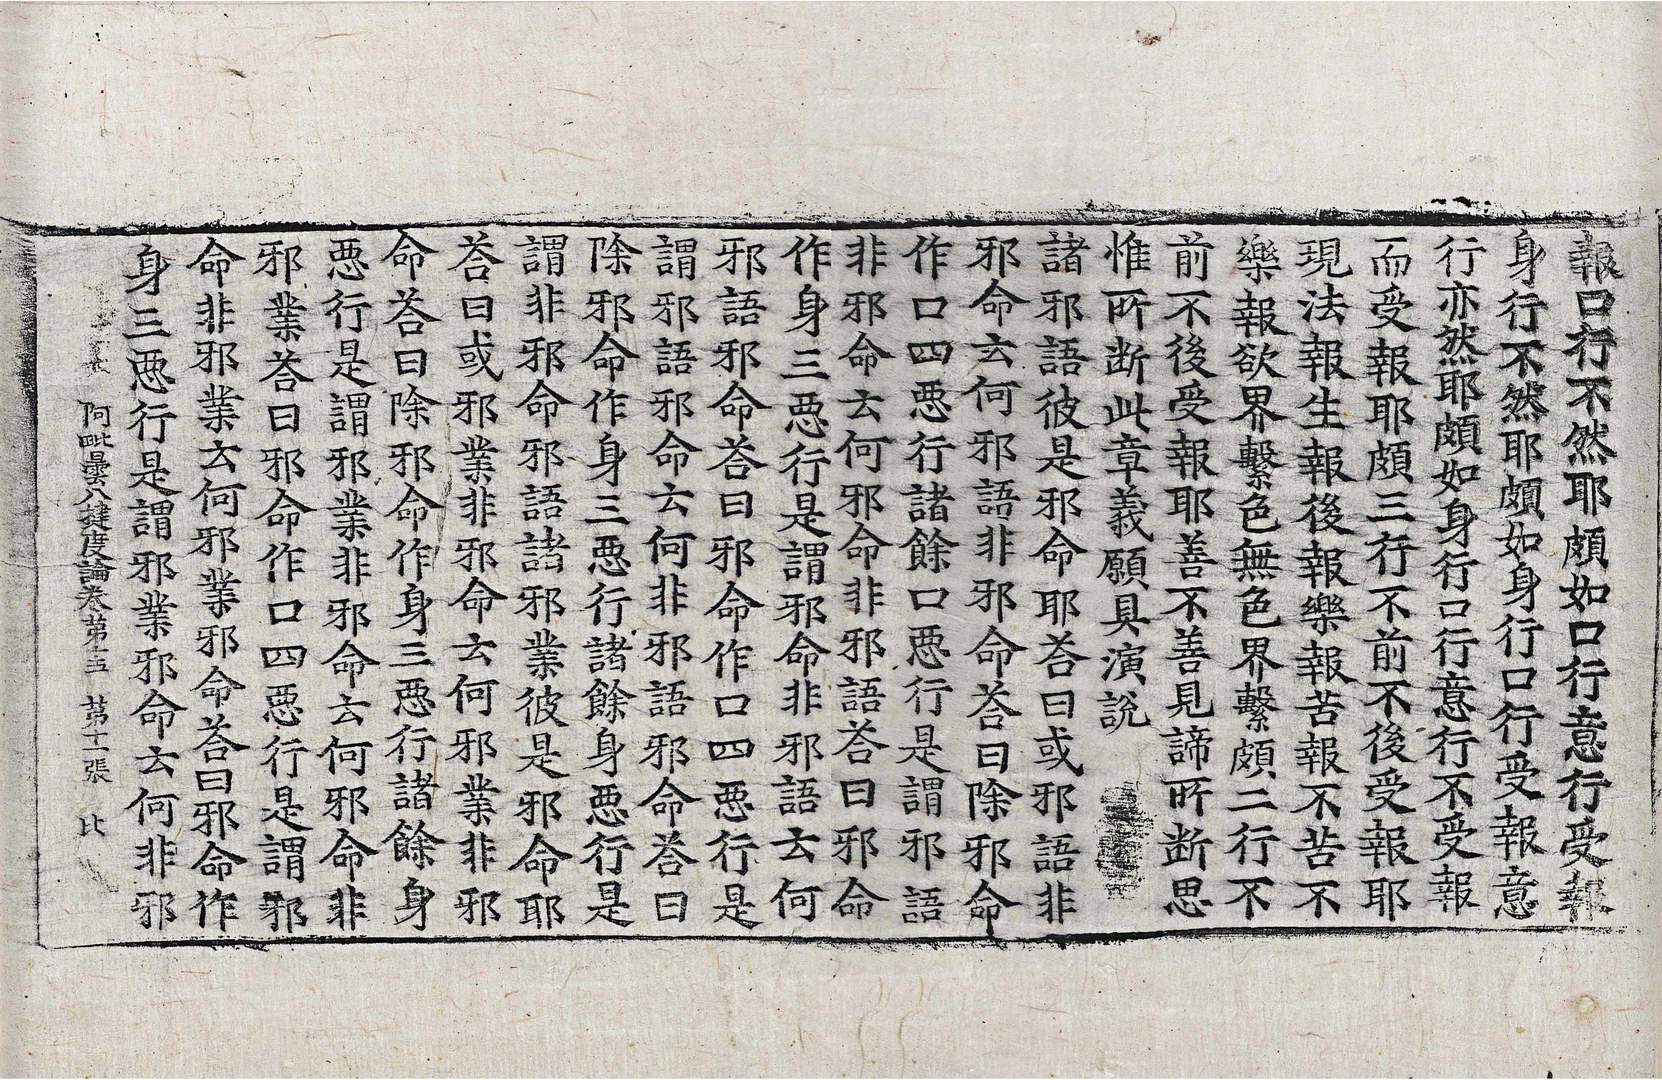 報口行不然耶頗如口行意行受報
身行不然耶頗如身行口行受報意
行亦然耶頗如身行口行意行不受報
而受報耶頗三行不前不後受報耶
現法報生報後報樂報苦報不苦不
樂報欲界繫色無色界繫頗二行不
前不後受報耶善不善見諦所断思
惟所断此章義願具演說
諸邪語彼是邪命耶荅曰或邪語非
邪命云何邪語非邪命荅曰除邪命
作口四惡行諸餘口惡行是謂邪語
非邪命云何邪命非邪語荅曰邪命
作身三惡行是謂邪命非邪語云何
邪語邪命荅曰邪命作口四惡行是
謂邪語邪命云何非邪語邪命荅曰
除邪命作身三惡行諸餘身惡行是
謂非邪命邪語諸邪業彼是邪命耶
荅曰或邪業非邪命云何邪業非邪
命荅曰除邪命作身三惡行諸餘身
惡行是謂邪業非邪命云何邪命非
邪業荅曰邪命作口四惡行是謂邪
命非邪業云何邪業邪命荅曰邪命作
身三惡行是謂邪業邪命云何非邪
阿毗曇八揵度論卷第十五 第十一張 比